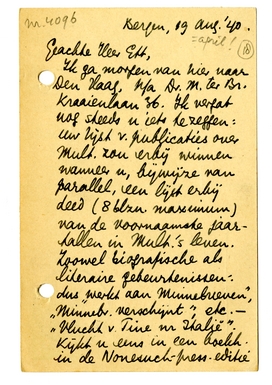 nr. 4096
Bergen, 19 Aug. '40.
= april!
Geachte Heer Ett,
Ik ga morgen van hier naar
Den Haag, p/a Dr. M. ter Br.
Kraaienlaan 36. Ik vergat
nog steeds u iets te zeggen:
uw lijst v. publicaties over
Mult. zou erbij winnen
wanneer u, bij wijze van
parallel, een lijst erbij
deed (8 blzn. maximum)
van de voornaamste jaar-
tallen in Mult.'s leven.
Zoowel biografische als
literaire gebeurtenissen:
dus "werkt aan Minnebrieven",
"Minnebr. verschijnt", etc. —
"Vlucht v. Tine nr Italië".
Kijkt u eens in een boekje
in de Nonesuch-press-editie